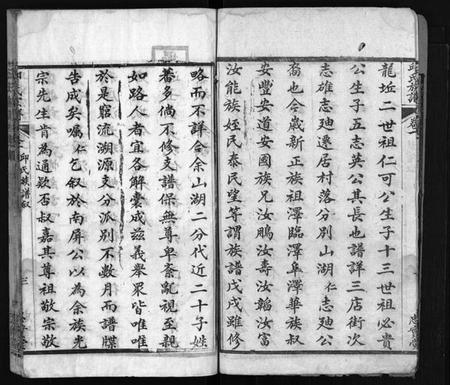 龍坵二世祖仁可公生子十三世祖必貴
公生子五志英公其長也譜詳三店街次
志雄志廸遷居村落分別山湖仁志廸公
裔也今歲新正族祖澤臨澤阜澤華族叔
安豐安道安國族兄汝鵬汝壽汝韜汝富
汝能族姪民泰民望等謂族譜戊戌雖修
略而不詳合余山湖二分代近二十子姓
蕃多倘不修支譜保無尊卑紊亂視至親
如路人者宜各解囊成茲義舉眾皆唯唯
於是窮流溯源支分派別不數月而譜牒
告成矣囑仁乞叙於南屏公以為余族光
宗先生肯為通欵否叔嘉其尊祖敬宗敬
邱氏族譜叙
三